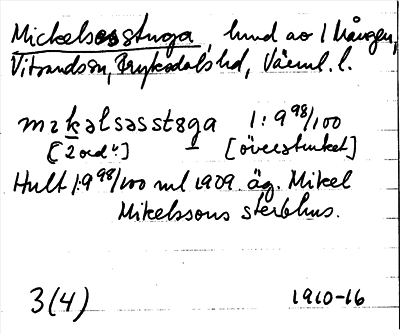 Mickelsesstuga, hmd av 1 Mången,
Vitsandssn, Fryksdalshd, Värml. l.
mɪkəlsəsstsga 1:9 98/100
["2 ord"] [överstruket]
Hult 1:9 98/100 ml 1909. äg. Mikel
Mikelssons sterbhus.
3(4) 1910-16